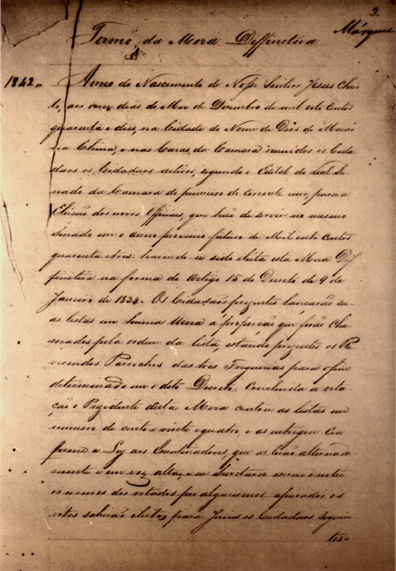 2
Márques
Termo da Meza Diffinitiva
1842,, Anno do Nascimento de Nosso Senhor Jesus Chris
to, aos onze dias do Mez de Dezembro de mil oito centos
quarenta e dois, na Cidade do Nome de Deos de Macao
na China, e nas Cazas da Camara reunidos os Cida
daos os Cidadaos activos, segundo o Edital do Leal Se
nado da Camara de primeiro do corrente mez, para a
Eleicão dos novos Officiaes, que hão de servir no mesmo
Senado em o anno proximo futuro de Mil oito centos
quarenta e tres: havendo-se sido eleita esta Meza Def
finitiva na forma do Artigo 15 do Decreto de 9 de
Janeiro de 1834. Os Cidadaos prezentes lancarão su
as listas em huma Urna á proporcão que forão cha
mados pela ordem da lista, estando prezentes os Re
verendos Parochos das tres Freguezias para o fim
determinado em o dito Decreto. Concluida a vota
cão o Prezidente desta Meza contou as listas em
numero de cento e vinte e quatro, e as entregou con
forme a Ley aos Escrutinadores, que as lerão alternada
mente e em voz alta, e o Secretario escreveo
os nomes dos votados por algarismos apurados os
votos sahirão eleitos para Juizes os Cidadaos seguin
tes-